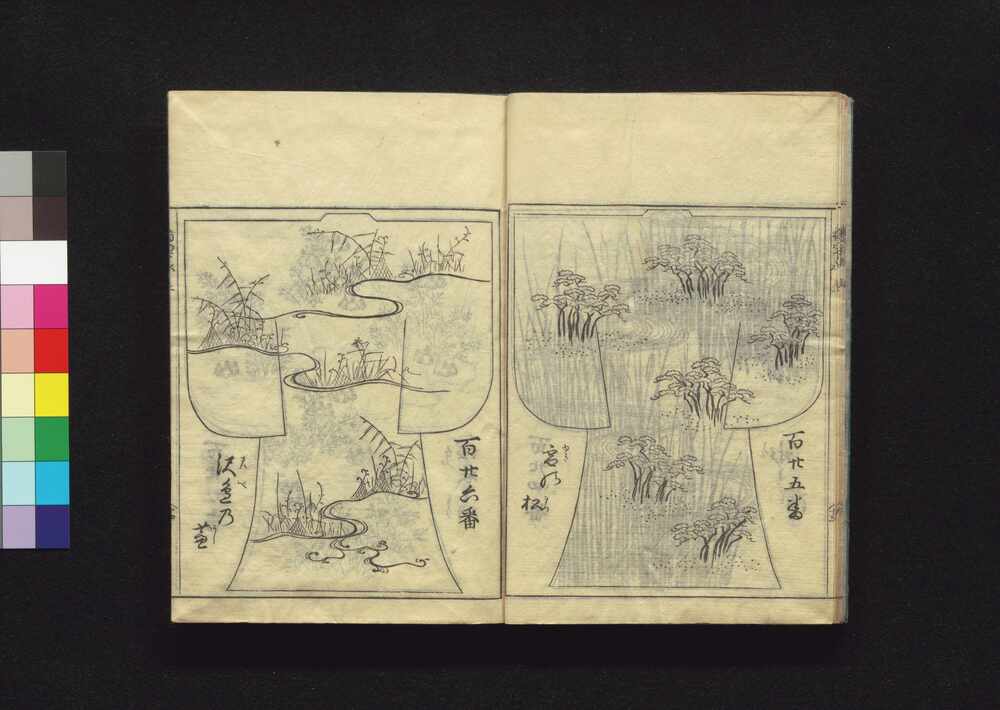 百廿五番
宮の松
百廿六番
沢邊乃芦